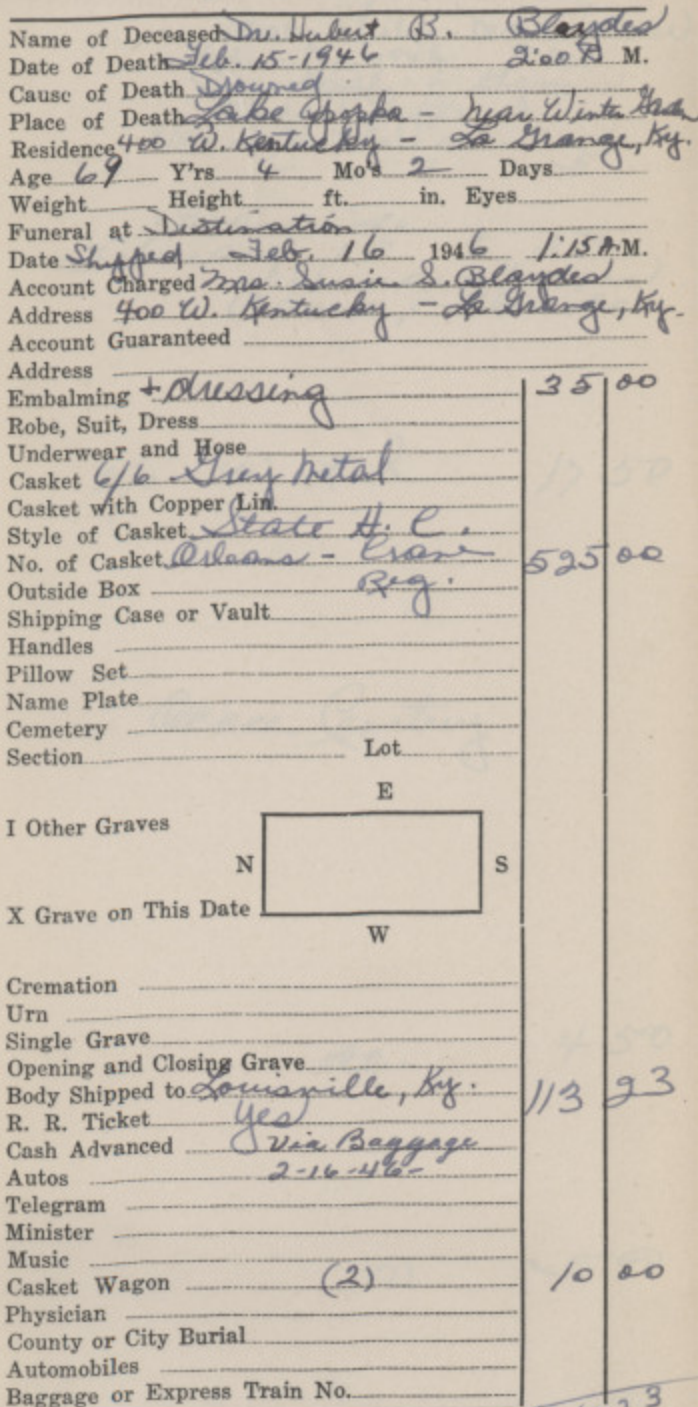 Name of Deceased Dr. Hubert B. Blaydes
Date of Death Feb. 15-1946 2:00 P. M.
Cause of Death Drowned
Place of Death Lake Apopka - near Winter Garden
Residence 400 W. Kentucky - La Grange, Ky.
Age 69 Y'rs 4 Mo's 2 Days
Weight Height ft. in. Eyes
Funeral at Destination
Date Shipped Feb. 16 1946 1:15 A.M.
Account Charged Mrs. Susie S. Blaydes
Address 400 W. Kentucky - La Grange, Ky.
Account Guaranteed
Address
Embalming + dressing 35 00
Robe, Suit, Dress
Underwear and Hose
Casket 6/6 Grey Metal
Casket with Copper Lin.
Style of Casket State H. C.
No. of Casket Orleans - Crane 525 00
Outside Box Reg.
Shipping Case or Vault
Handles
Pillow Set
Name Plate
Cemetery
Section Lot
E
I Other Graves
N S
X Grave on This Date
W
Cremation
Urn
Single Grave
Opening and Closing Grave
Body Shipped to Louisville, Ky. 113 23
R. R. Ticket Yes
Cash Advanced Via Baggage
Autos 2-16-46-
Telegram
Minister
Music
Casket Wagon (2) 10 00
Physician
County or City Burial
Automobiles
Baggage or Express Train No.